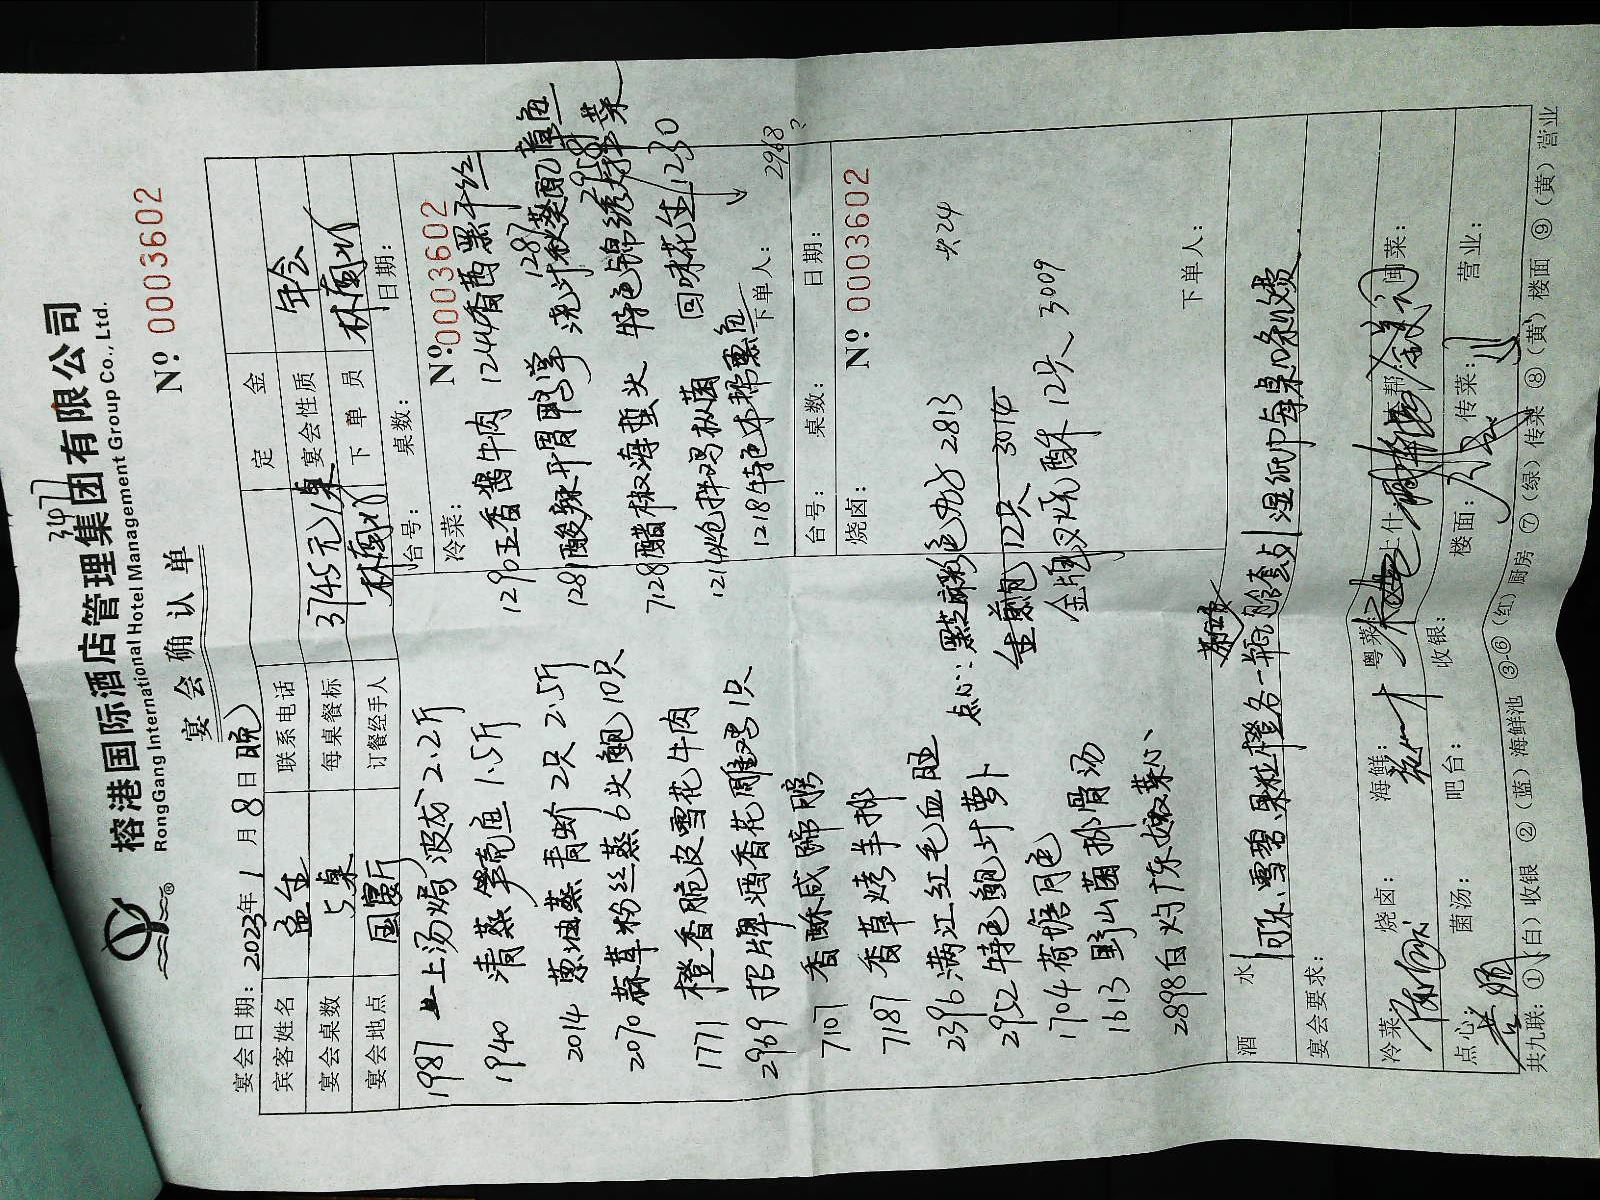 榕港国际酒店管理集团有限公司
RongGang International Hotel Management Group Co., Ltd.
宴会确认单
Nº 0003602
宴会日期: 2023年1月8日 晚
定金
宾客姓名 孟金 联系电话
宴会性质 年会
宴会桌数 5桌 每桌餐标 3745元/桌
下单员
宴会地点 国宴厅 订餐经手人
1987 上汤焗波龙 2.2斤
1940 清蒸笋壳鱼 1.5斤
2014 葱油蒸青蚧 2只 2.5斤
2070 蒜茸粉丝蒸6头鲍 10只
1771 橙香脆皮雪花牛肉
2969 招牌酒香花雕鸡 1只
7107 香酥咸蹄膀
7187 香草烤羊排
2396 满江红毛血旺
2952 特色鲍汁萝卜
1704 荷塘月色
1613 野山菌排骨汤
2898 白灼广东菜心
台号: 桌数: 日期:
冷菜: Nº:0003602
1290 五香酱牛肉 1244 香茜黑干丝
1281 酸辣开胃鸭掌 1287 浇汁秋葵配章鱼
7128 醋椒海蜇头 特色锦绣拌菜 2958
1214 炝拌鸡枞菌 回味花生 1230
1218 特色本帮熏鱼
2968?
下单人:
台号: 桌数: 日期:
烧卤: Nº:0003602
共24
点心: 黑芝麻 2813
生煎包 12只 3014
金牌叉烧酥 12只 3009
下单人:
酒水 可乐.雪碧.果粒橙各一瓶
湿纸巾每桌10条收费.
宴会要求:
冷菜: 烧卤: 海鲜: 粤菜: 上什: 本帮: 闽菜:
点心: 菌汤: 吧台: 收银: 楼面: 传菜: 营业:
共九联: ①(白)收银 ②(蓝)海鲜池 ③-⑥(红)厨房 ⑦(绿)传菜 ⑧(黄)楼面 ⑨(黄)营业